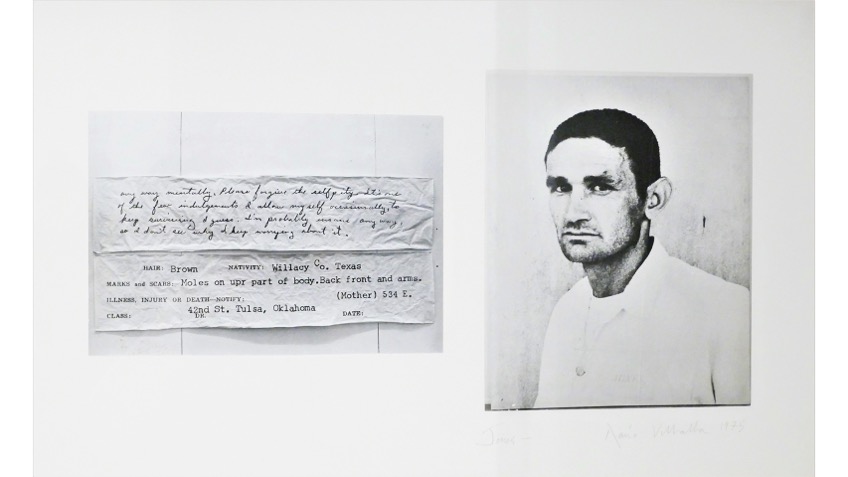 any way mentally. Please forgive the selfpity – it's one
of the few indulgences I allow myself occasionally, to
keep surviving I guess. I'm probably insane anyway
so I don't see why I keep worrying about it.
HAIR: Brown NATIVITY: Willacy Co. Texas
MARKS and SCARS: Moles on upr part of body.Back front and arms.
ILLNESS, INJURY OR DEATH—NOTIFY: (Mother) 534 E.
42nd St. Tulsa, Oklahoma
CLASS: DR. DATE: